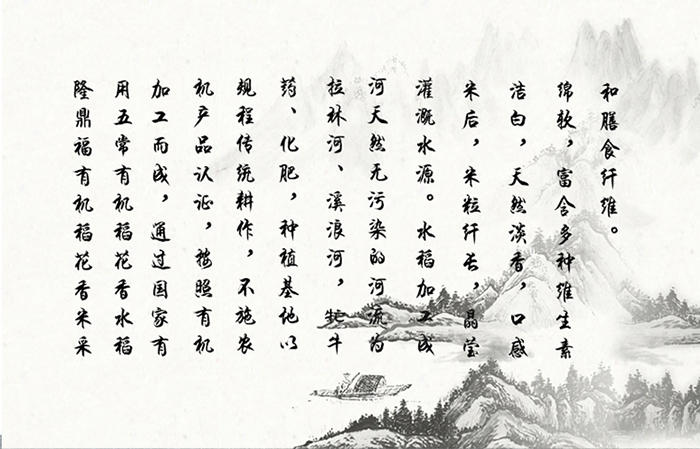 隆鼎福有机稻花香米采
用五常有机稻花香水稻
加工而成，通过国家有
机产品认证，按照有机
规程传统耕作，不施农
药、化肥，种植基地以
拉林河、溪浪河，牤牛
河天然无污染的河流为
灌溉水源。水稻加工成
米后，米粒纤长，晶莹
洁白，天然淡香，口感
绵软，富含多种维生素
和膳食纤维。